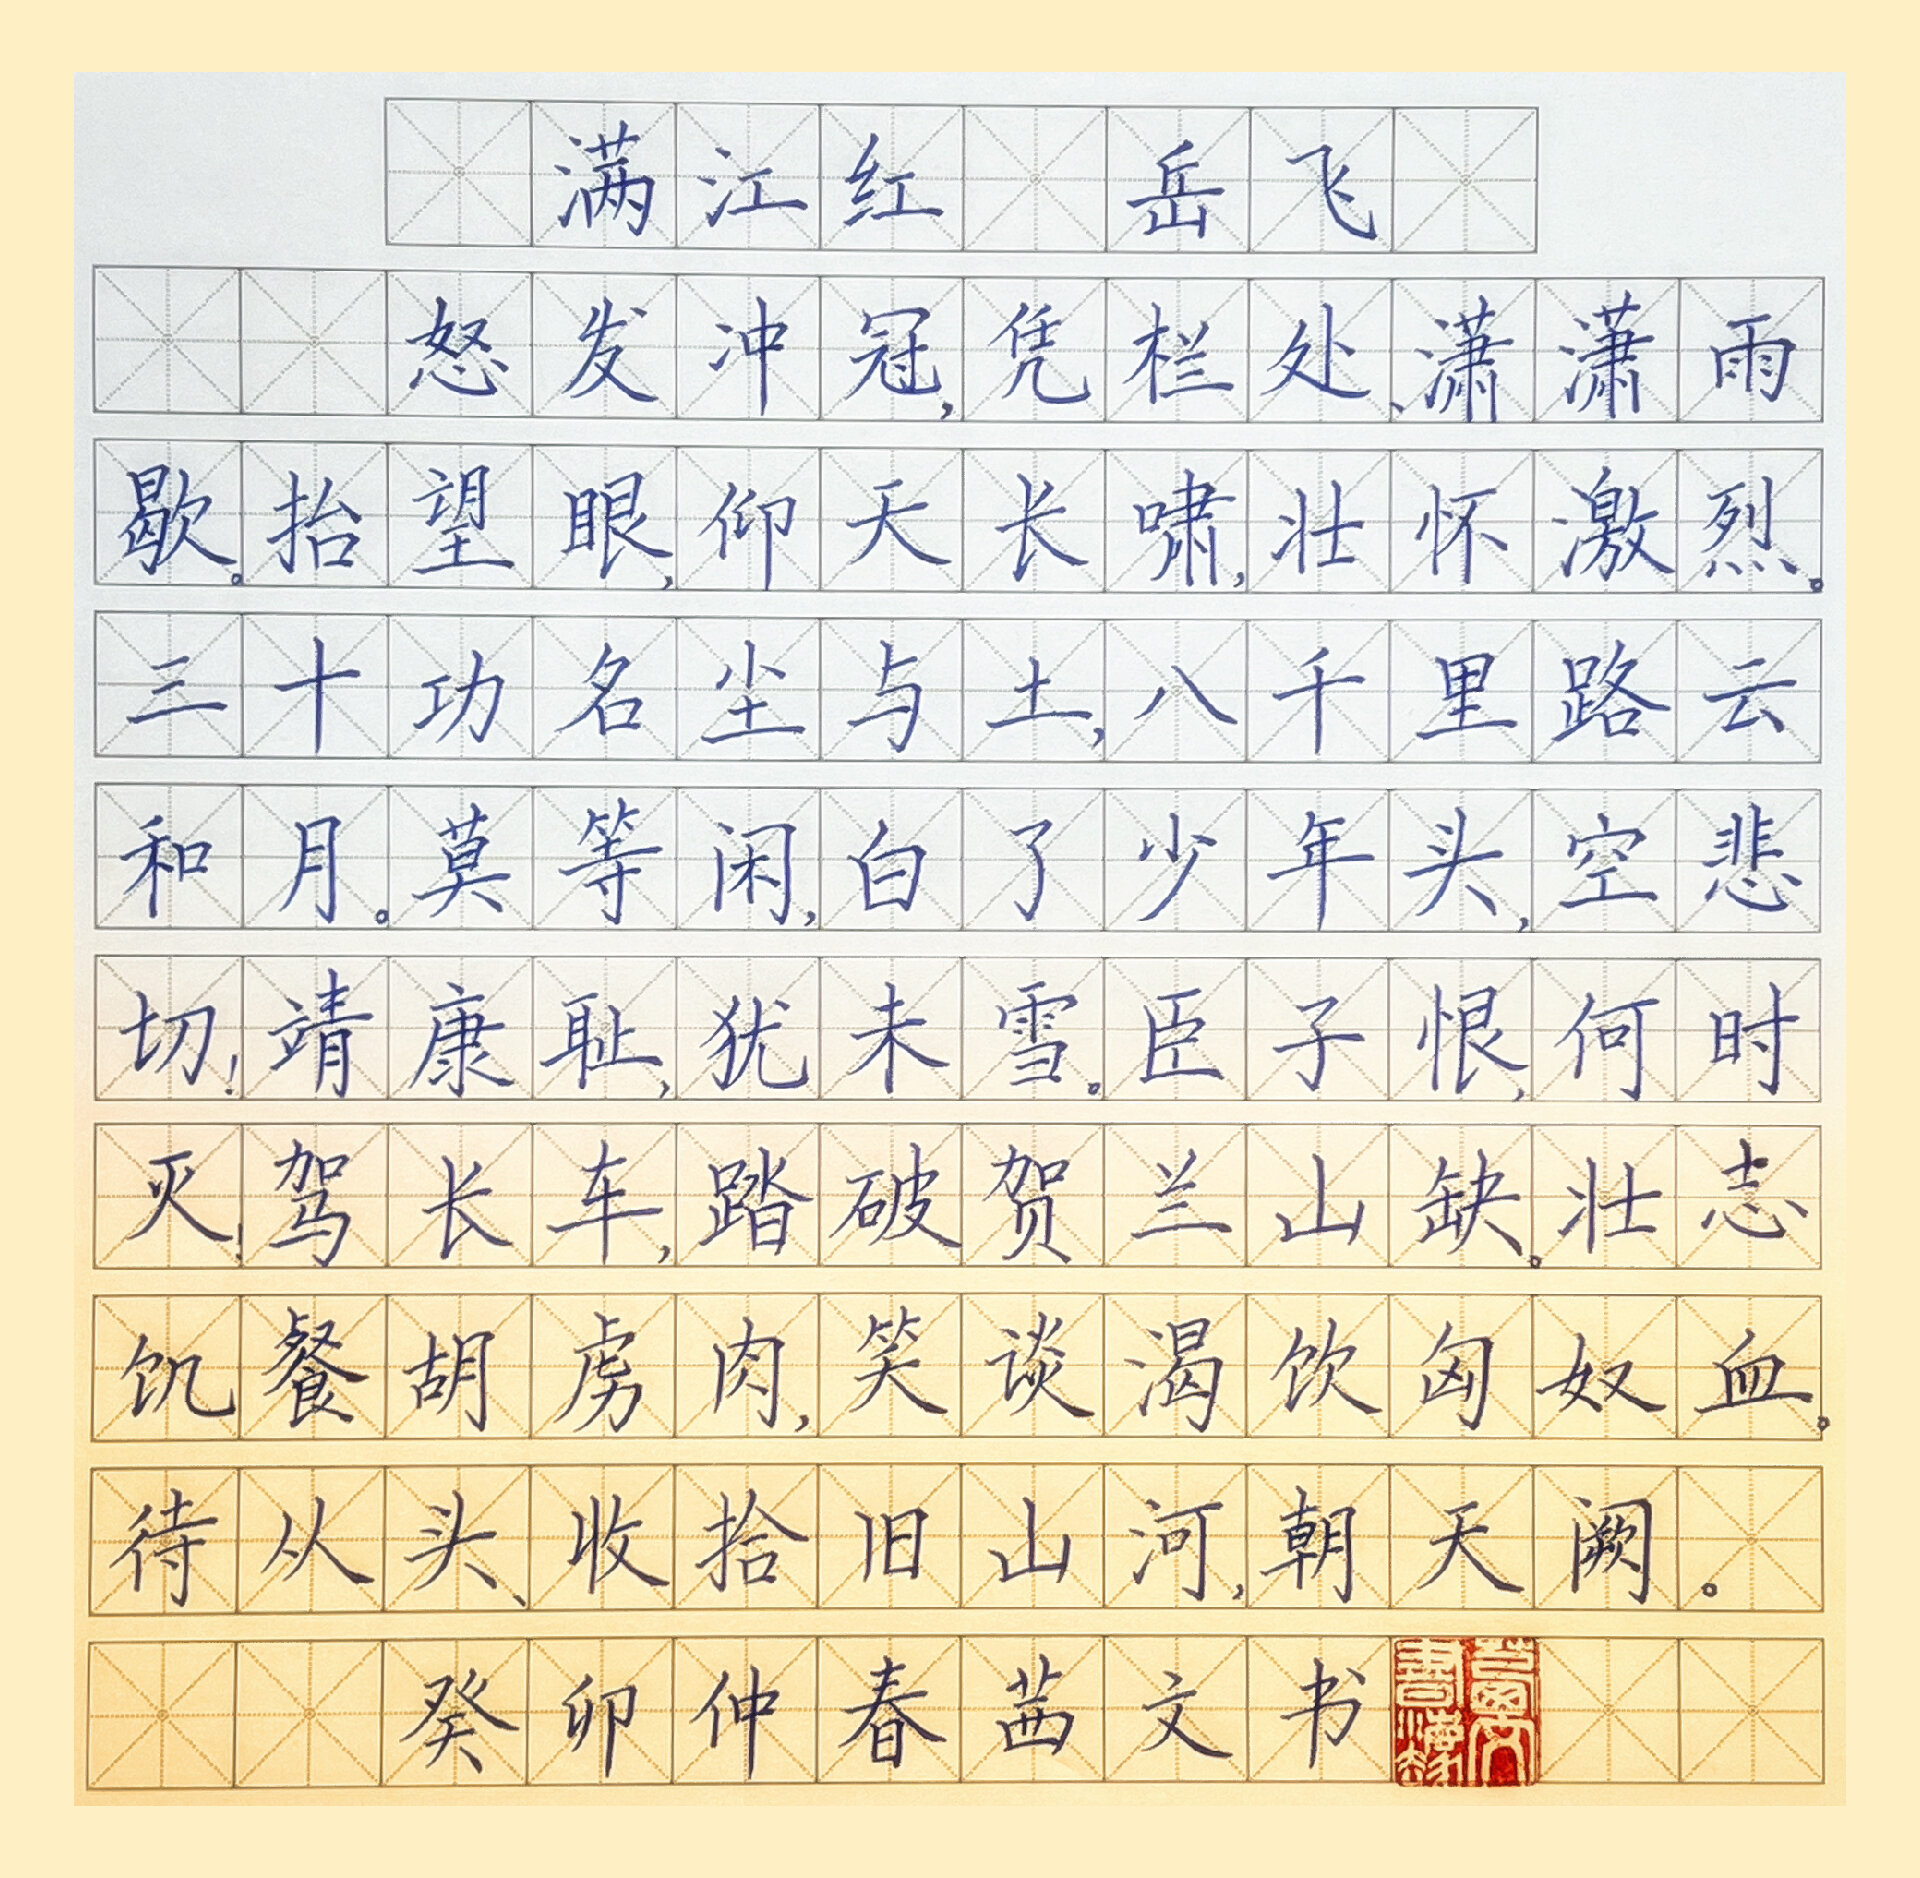 满江红 岳飞
怒发冲冠,凭栏处、潇潇雨
歇。抬望眼,仰天长啸,壮怀激烈。
三十功名尘与土,八千里路云
和月。莫等闲,白了少年头,空悲
切!靖康耻,犹未雪。臣子恨,何时
灭!驾长车,踏破贺兰山缺。壮志
饥餐胡虏肉,笑谈渴饮匈奴血。
待从头、收拾旧山河,朝天阙。
癸卯仲春茜文书